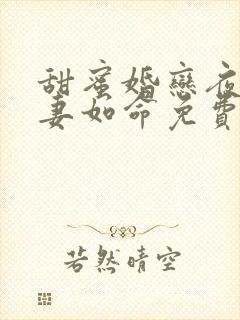 甜蜜婚戀夜
妻如命免費
若然晴空